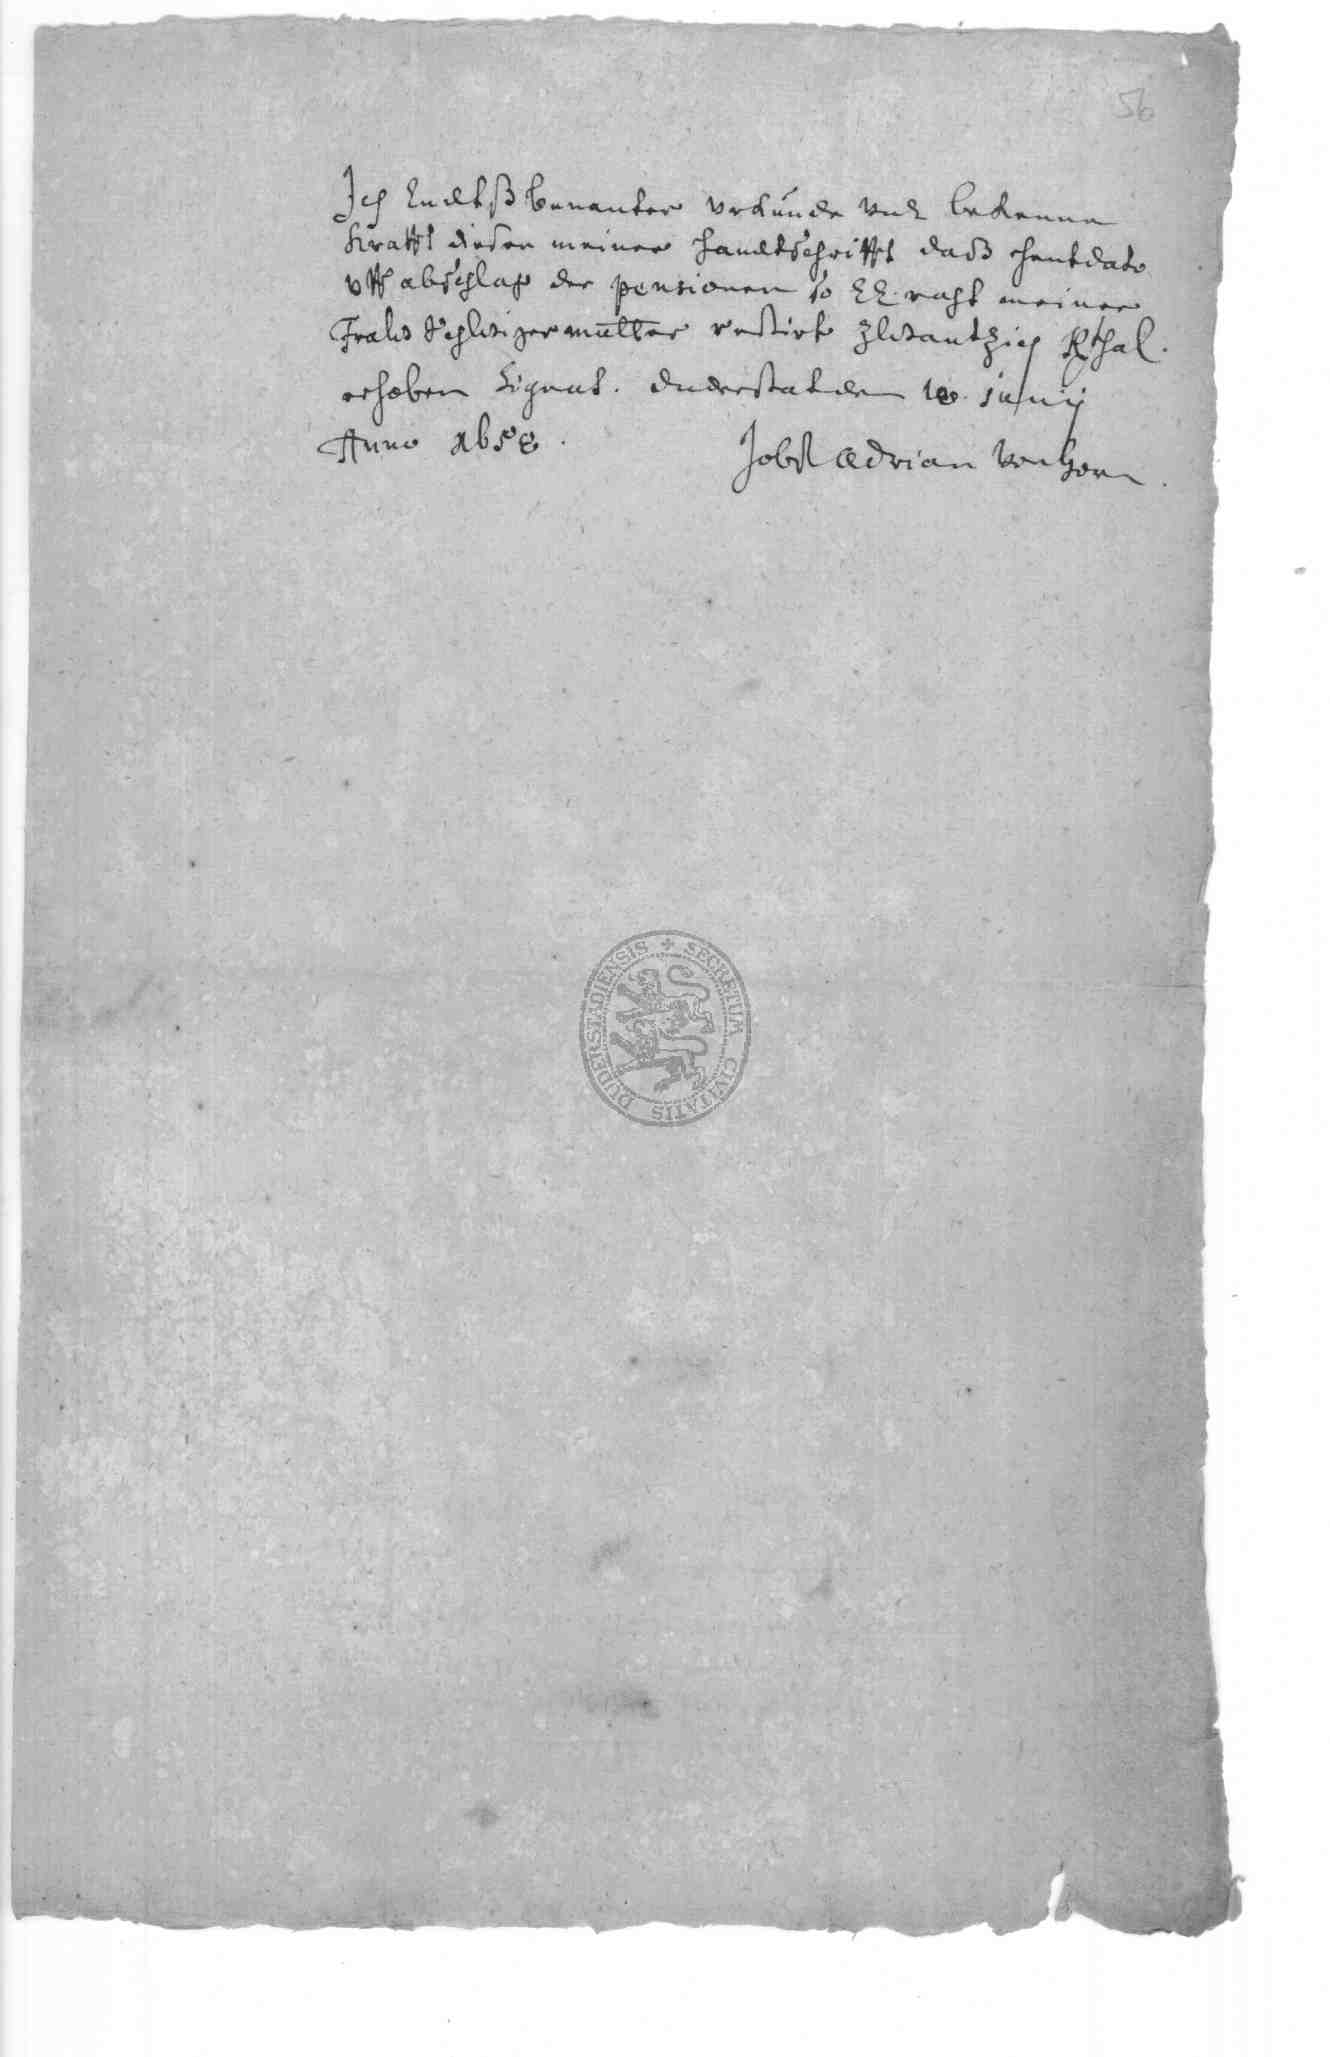 56
Ich Endtßbenanter vrkunde vnd bekenne
Krafft dieser meiner handtschrifft daß heut dato
vff abschlag der pensionen so EE. raht meiner
Fraw Schwigermutter restirt zwantzich Rthal.
erhoben Signat. Duderstat den 10. junij
Anno 1658.
Jobst Adrian von Horn.
SECRETUM CIVITATIS DUDERSTADIENSIS